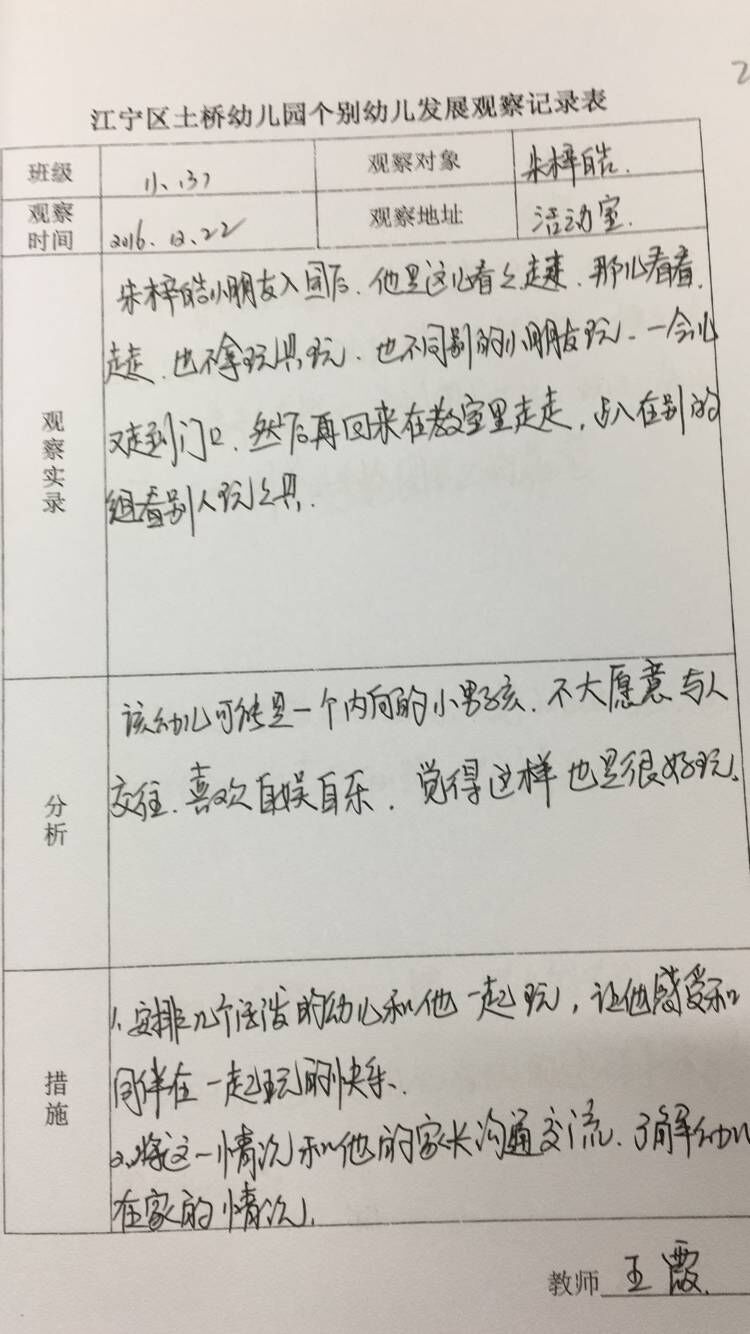 2
江宁区土桥幼儿园个别幼儿发展观察记录表
班级 小(3) 观察对象 朱梓皓.
观察时间 2016.12.22 观察地址 活动室.
观察实录
朱梓皓小朋友入园后.他是这儿看看走走.那儿看看.
走走.也不拿玩具玩.也不同别的小朋友玩.一会儿
又走到门口.然后再回来在教室里走走,趴在别的
组看别人玩玩具.
分析
该幼儿可能是一个内向的小男孩.不大愿意与人
交往.喜欢自娱自乐.觉得这样也是很好玩.
措施
1.安排几个活泼的幼儿和他一起玩,让他感受和
同伴在一起玩的快乐.
2.将这一情况和他的家长沟通交流.了解幼儿
在家的情况.
教师 王霞.